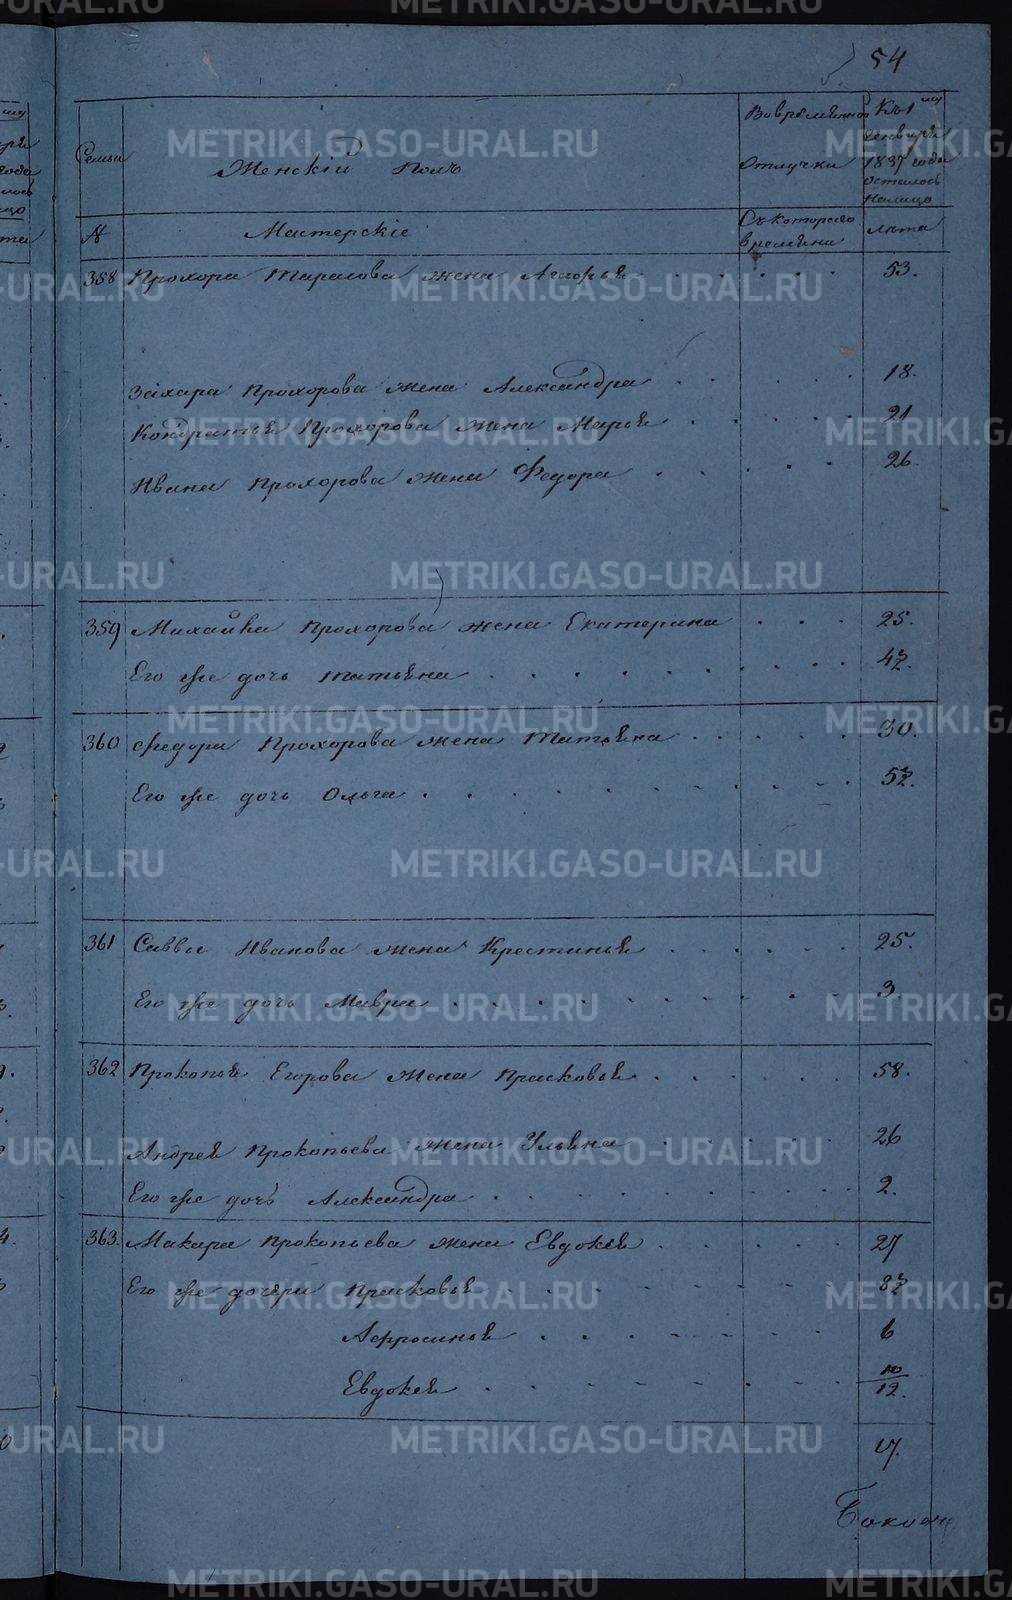 54
Семьи
Женскій Полъ
Вовремянной
отлучки
Къ 1му
Генваря
1837 года
осталось
налицо
№
Мастерскіе
Съ котораго
времяни
лѣта
358 Прохора Тарасова жена Агафья . . . . . . 53.
Захара Прохорова жена Александра . . . . . 18.
Кондратья Прохорова жена Марья . . . . . 21
Ивана Прохорова жена Федора . . . . . 26.
359 Михайла Прохорова жена Екатерина . . . 25.
Его же дочь Татьяна . . . . . . . . 4½.
360 Федора Прохорова жена Татьяна . . . . . 30.
Его же дочь Ольга . . . . . . . . . . 5½.
361 Саввы Иванова жена Крестинья . . . . . . 25.
Его же дочь Мавра . . . . . . . . . 3.
362 Прокопья Егорова жена Прасковья . . . . . . 58.
Андрея Прокопьева жена Ульяна . . . . . 26
Его же дочь Александра . . . . . . . . . 2.
363. Макара Прокопьева жена Евдокея . . . . . 27
Его же дочери Прасковья . . . . . . . . 8½
Афросинья . . . . . . . 6
Евдокея . . . . . . . 10/12.
17.
METRIKI.GASO-URAL.RU